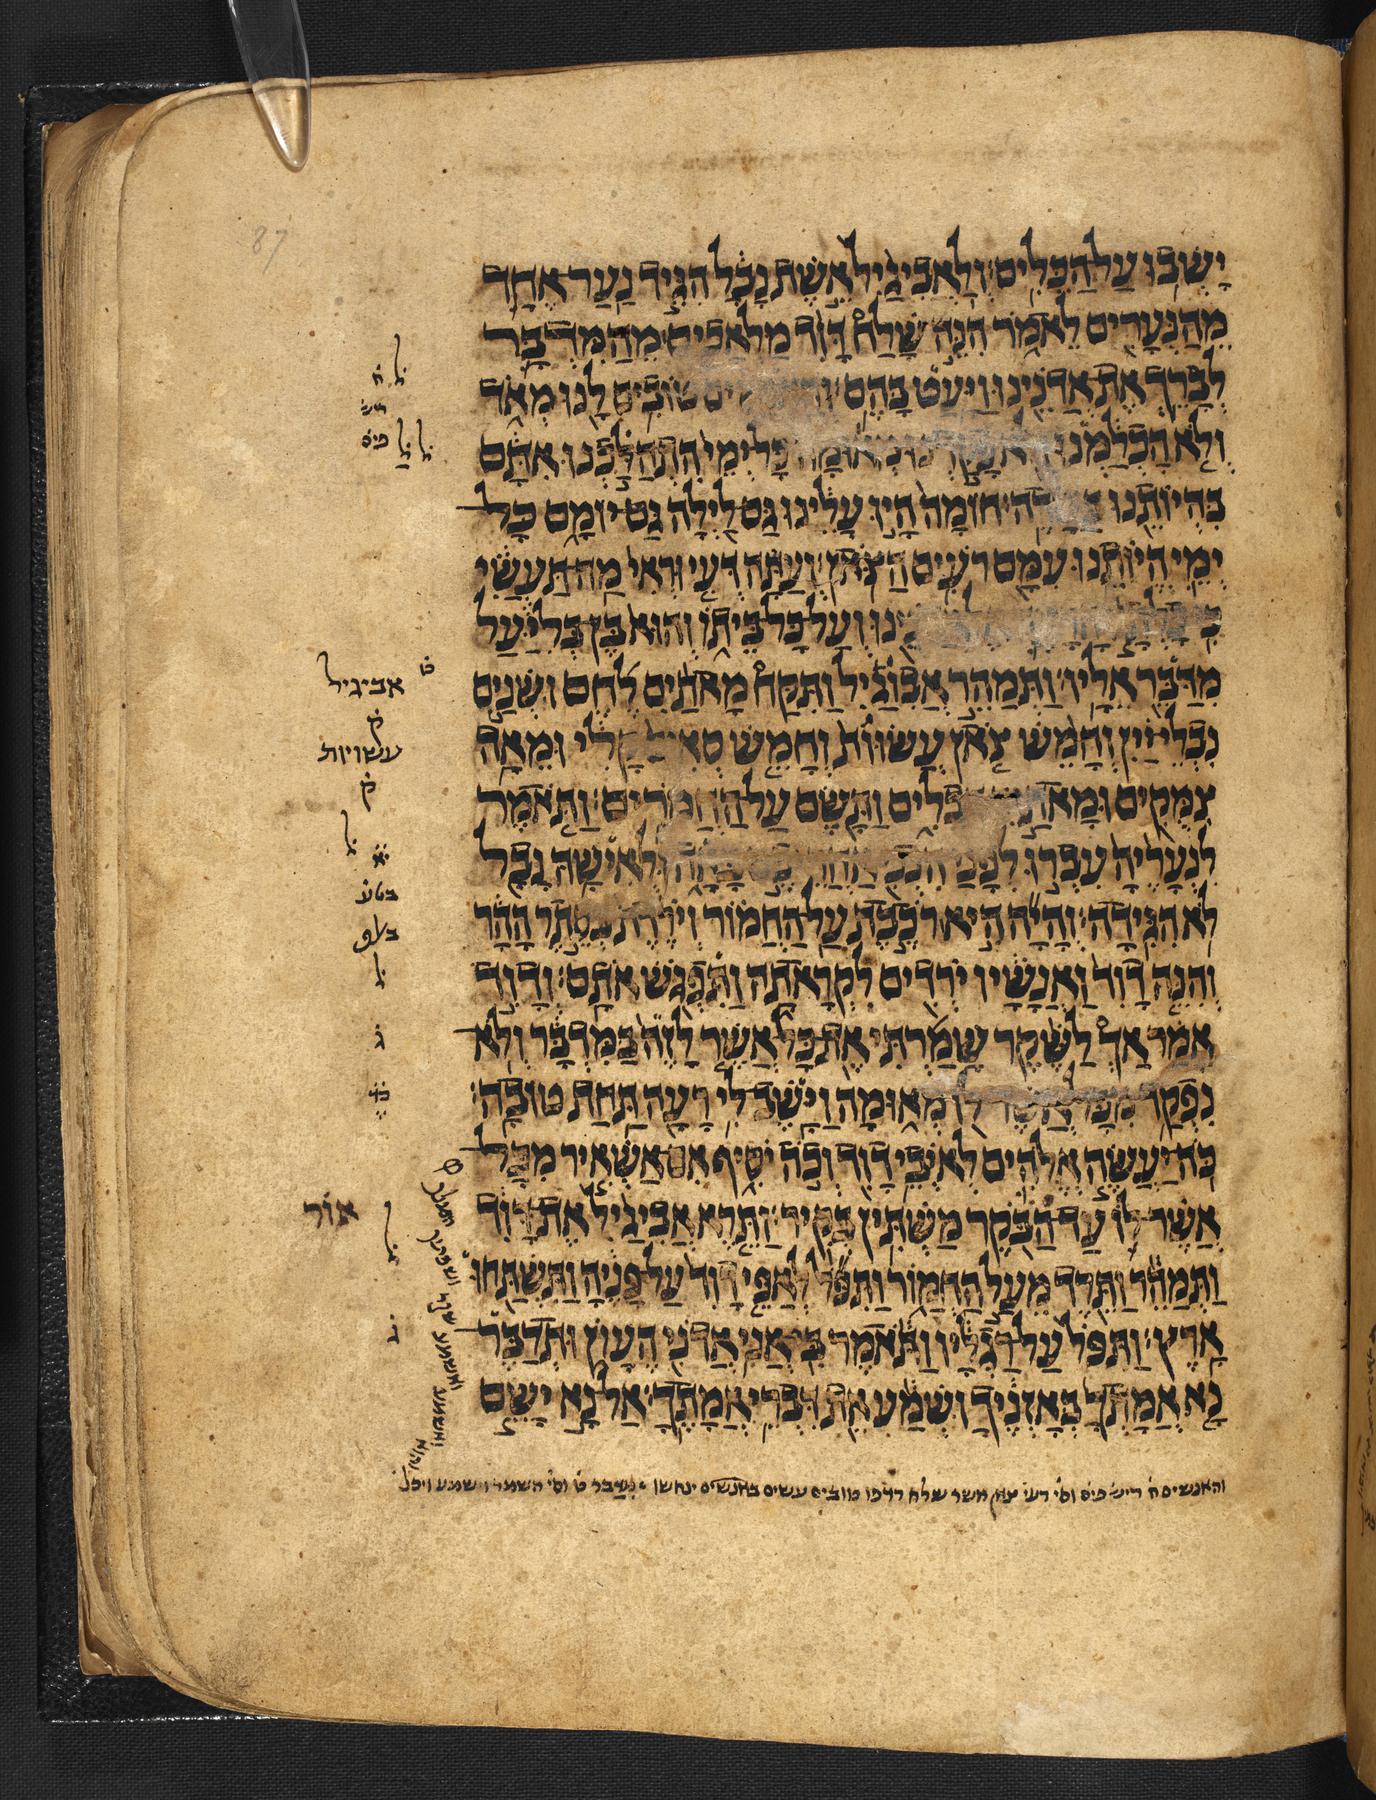 87
ישבו על הכלים׃ ולאביגיל אשת נבל הגיד נער אחד
מהנערים לאמר הנה שלח דוד מלאכים מהמדבר
לברך את אדנינו ויעט בהם׃ טובים לנו מאד
ולא הכלמנו מאומה כל ימי התהלכנו אתם
בהיותנו בשדה׃ חומה היו עלינו גם לילה גם יומם כל
ימי היותנו עמם רעים הצאן׃ ועתה דעי וראי מה תעשי
ועל כל ביתו והוא בן בליעל
מדבר אליו׃ ותמהר אבוגיל ותקח מאתים לחם ושנים
נבלי יין וחמש צאן עשוות וחמש סאים קלי ומאה
צמקים ומאתים דבלים ותשם על החמרים׃ ותאמר
לנעריה עברו לפני ולאישה נבל
לא הגידה׃ והיה היא רכבת על החמור וירדת בסתר ההר
והנה דוד ואנשיו ירדים לקראתה ותפגש אתם׃ ודוד
אמר אך לשקר שמרתי את כל אשר לזה במדבר ולא
נפקד מכל אשר לו מאומה וישב לי רעה תחת טובה׃
כה יעשה אלהים לאיבי דוד וכה יסיף אם אשאיר מכל
אשר לו עד הבקר משתין בקיר׃ ותרא אביגיל את דוד
ותמהר ותרד מעל החמור ותפל לאפי דוד על פניה ותשתחו
ארץ׃ ותפל על רגליו ותאמר בי אני אדני העון ותדבר
נא אמתך באזניך ושמע את דברי אמתך׃ אל נא ישם
אביגיל
ק
עשויות
ק
ל
בטע
ל
ג
אור
ל
ג
והאנשים ריש פיס וסי רעי צאן אשר שלח רדפו טובים עשים באנשים ינחשו